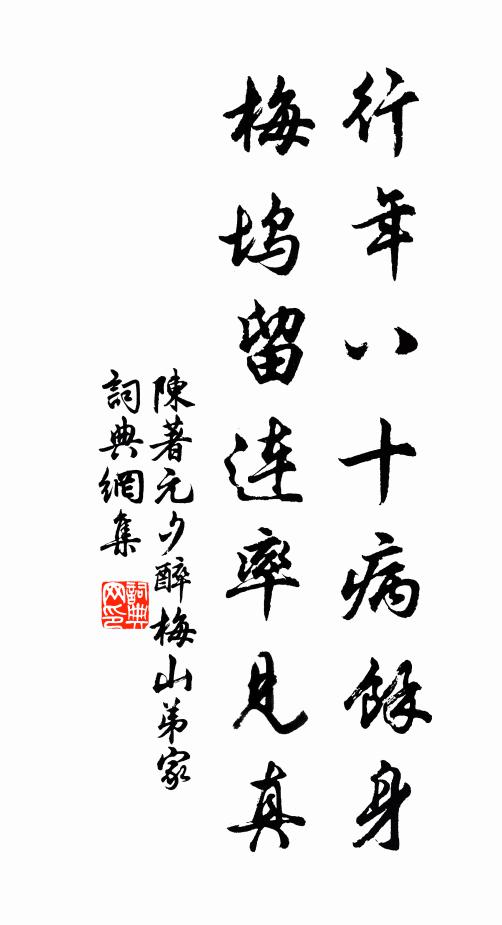 行年八十病餘身
梅塢留連率見真
陳著元夕醉梅山弟家
詞典網集
詞典网印